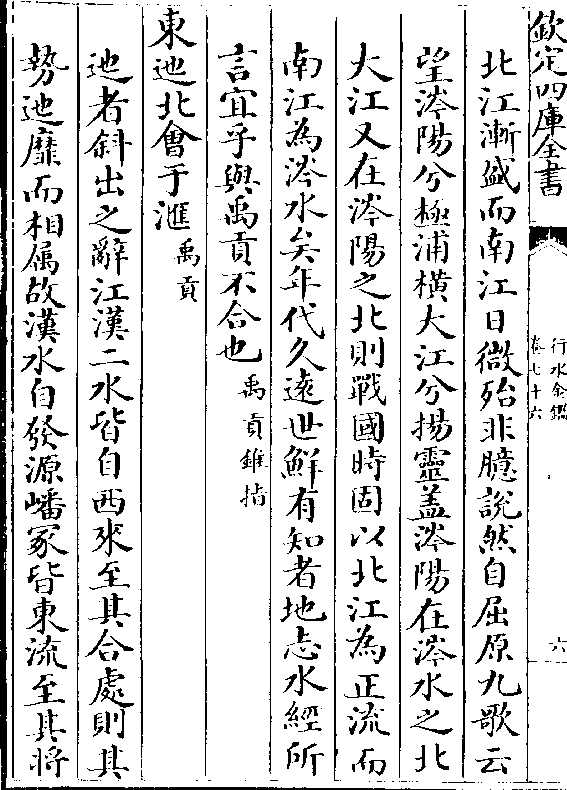 欽定四庫全書
行水金鑑
卷七十六
六
北江漸盛而南江日微殆非臆說然自屈原九歌云
望涔陽兮極浦橫大江兮揚靈盖涔陽在涔水之北
大江又在涔陽之北則戰國時固以北江為正流而
南江為涔水矣年代久遠世鮮有知者地志水經所
言宜乎與禹貢不合也禹貢錐指
東迆北會于滙禹貢
迆者斜出之辭江漢二水皆自西來至其合處則其
勢迆靡而相屬故漢水自發源嶓冢皆東流至其將